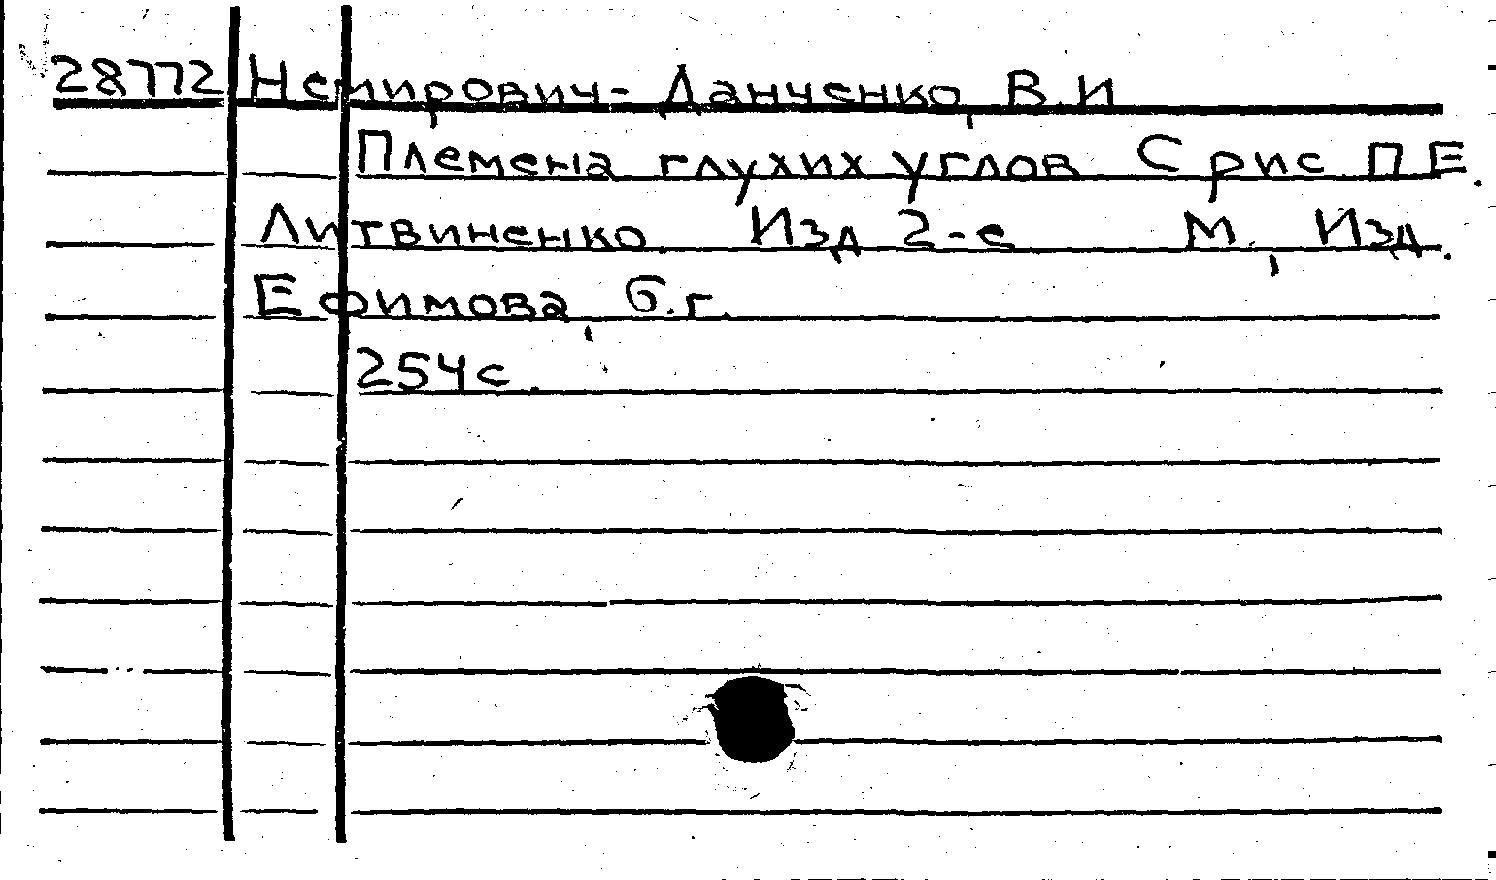 28772 Немирович-Данченко, В.И.
Племена глухих углов. С рис. П.Е.
Литвиненко. Изд. 2-е. М., Изд.
Ефимова, б.г.
254с.